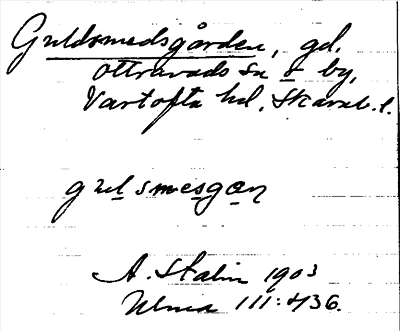 Guldsmedsgården, gd.
Ottravads sn o by,
Vartofta hd, Skarab. l.
gulsmesgɷn
A. Stalin 1903
Ulma 111:436.